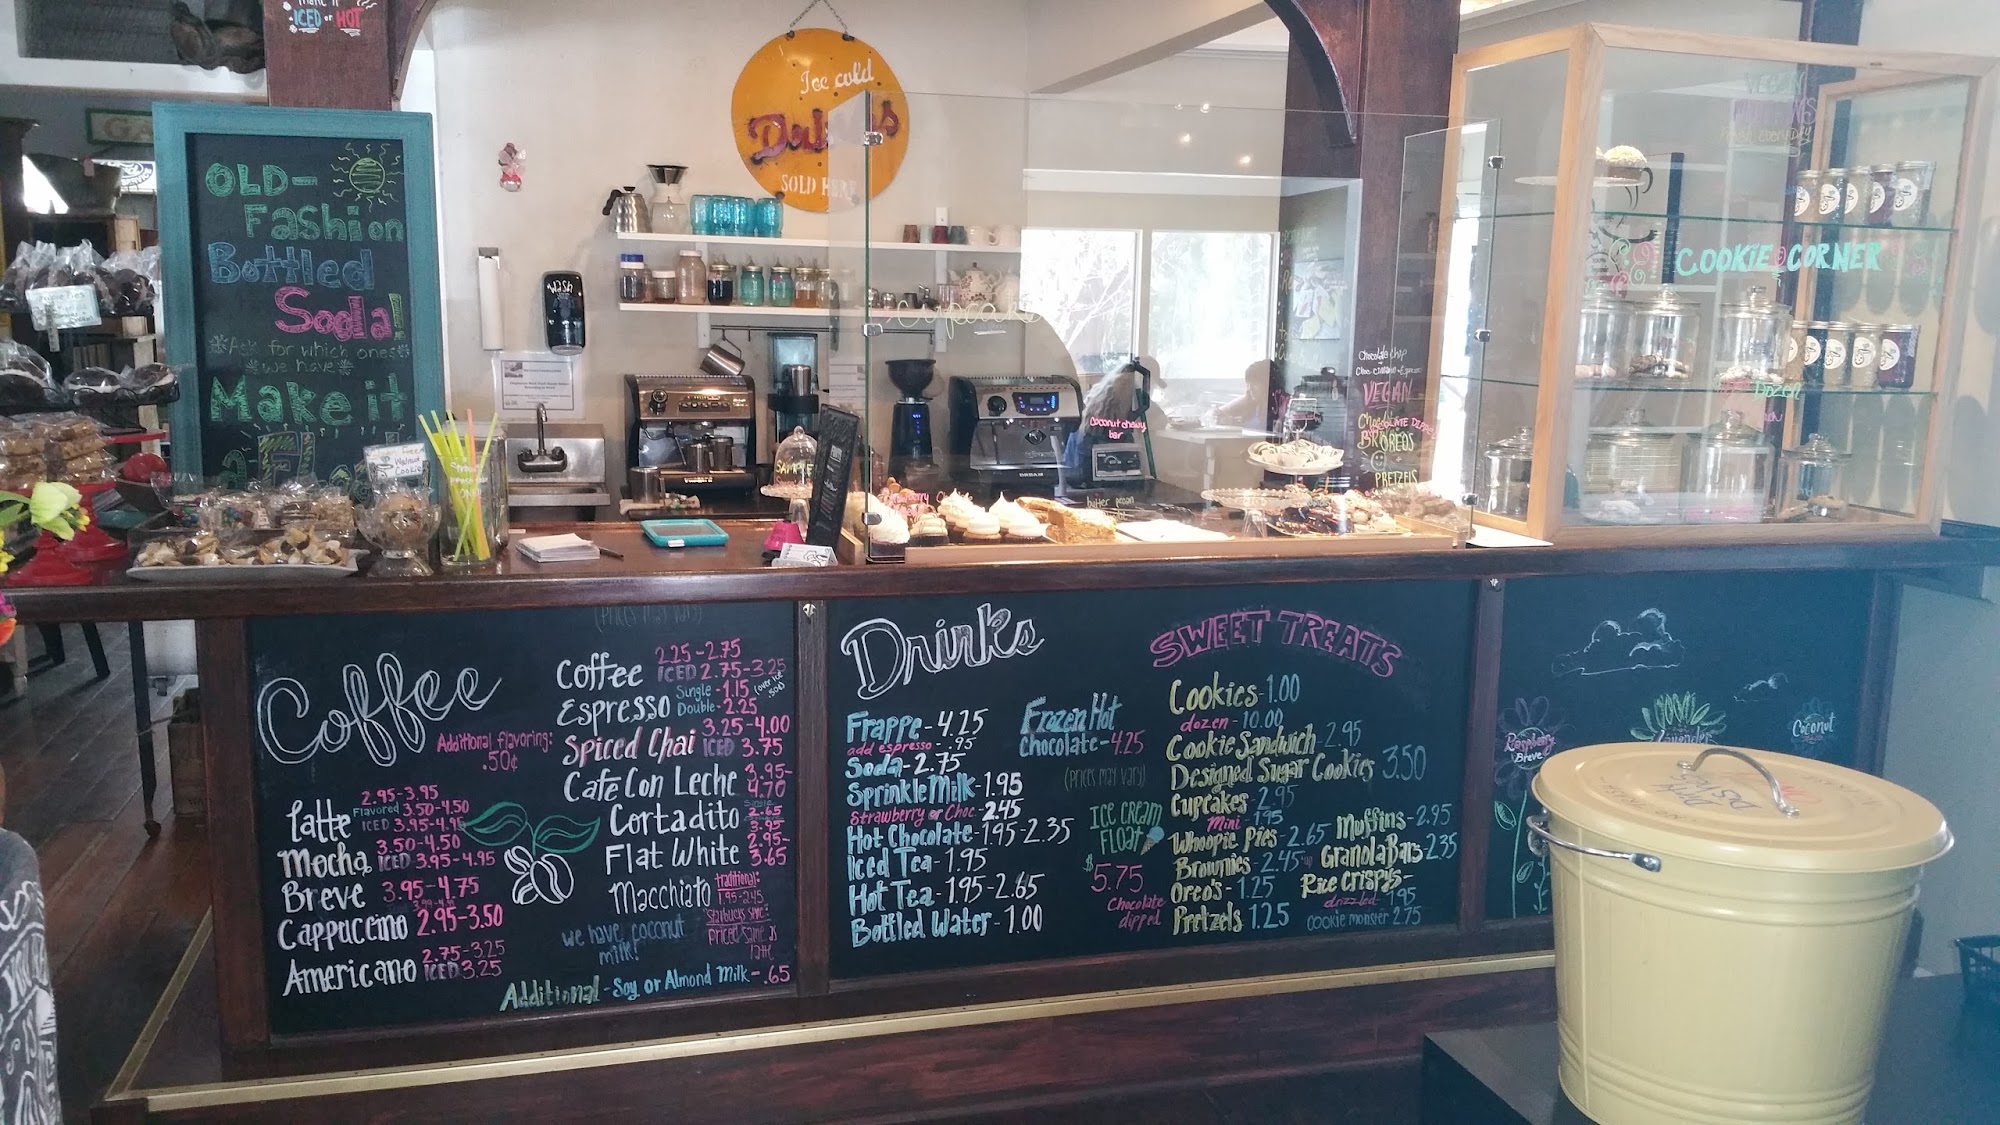 make it
ICED or HOT
OLD-
FASHION
Bottled
Soda!
*Ask for which ones*
*we have*
Make it
a Float
Ice cold
Drinks
SOLD HERE
WASH
Walnut
Cookie
SAMPLE
Cupcakes
coconut chewy
bar
butter pecan
Chocolate chip
VEGAN
Chocolate Dipped
OREOS
PRETZELS
VEGAN
MUFFINS
Fresh Everyday
COOKIE CORNER
Dozen
(Prices may vary)
Coffee
Additional flavoring:
.50¢
Latte 2.95-3.95
Flavored 3.50-4.50
ICED 3.95-4.95
Mocha 3.50-4.50
ICED 3.95-4.95
Breve 3.95-4.75
Cappuccino 2.95-3.50
Americano 2.75-3.25
ICED 3.25
Coffee 2.25-2.75
ICED 2.75-3.25
Espresso Single-1.15 (over ice .50)
Double-2.25
Spiced Chai 3.25-4.00
ICED 3.75
Cafe Con Leche 3.95-
4.70
Cortadito Single
2.65
3.95
Flat White 2.95-
3.65
Macchiato traditional:
1.95-2.45
"Starbucks Style":
priced same as
latte
we have coconut
milk!
Additional-Soy or Almond Milk-.65
Drinks
Frappe-4.25
add espresso-.95
Soda-2.75
Sprinkle Milk-1.95
Strawberry or Choc. 2.45
Hot Chocolate-1.95-2.35
Iced Tea-1.95
Hot Tea-1.95-2.65
Bottled Water-1.00
Frozen Hot
Chocolate-4.25
(Prices may vary)
ICE CREAM
FLOAT
$5.75
Chocolate
dipped
SWEET TREATS
Cookies-1.00
dozen-10.00
Cookie Sandwich-2.95
Designed Sugar Cookies 3.50
Cupcakes-2.95
Mini-1.95
Whoopie Pies-2.65
Brownies-2.45
Oreo's-1.25
Pretzels 1.25
Muffins-2.95
Granola Bars 2.35
Rice Crispys-
drizzled-1.95
cookie monster 2.75
Raspberry
Breve
Lavender
Coconut